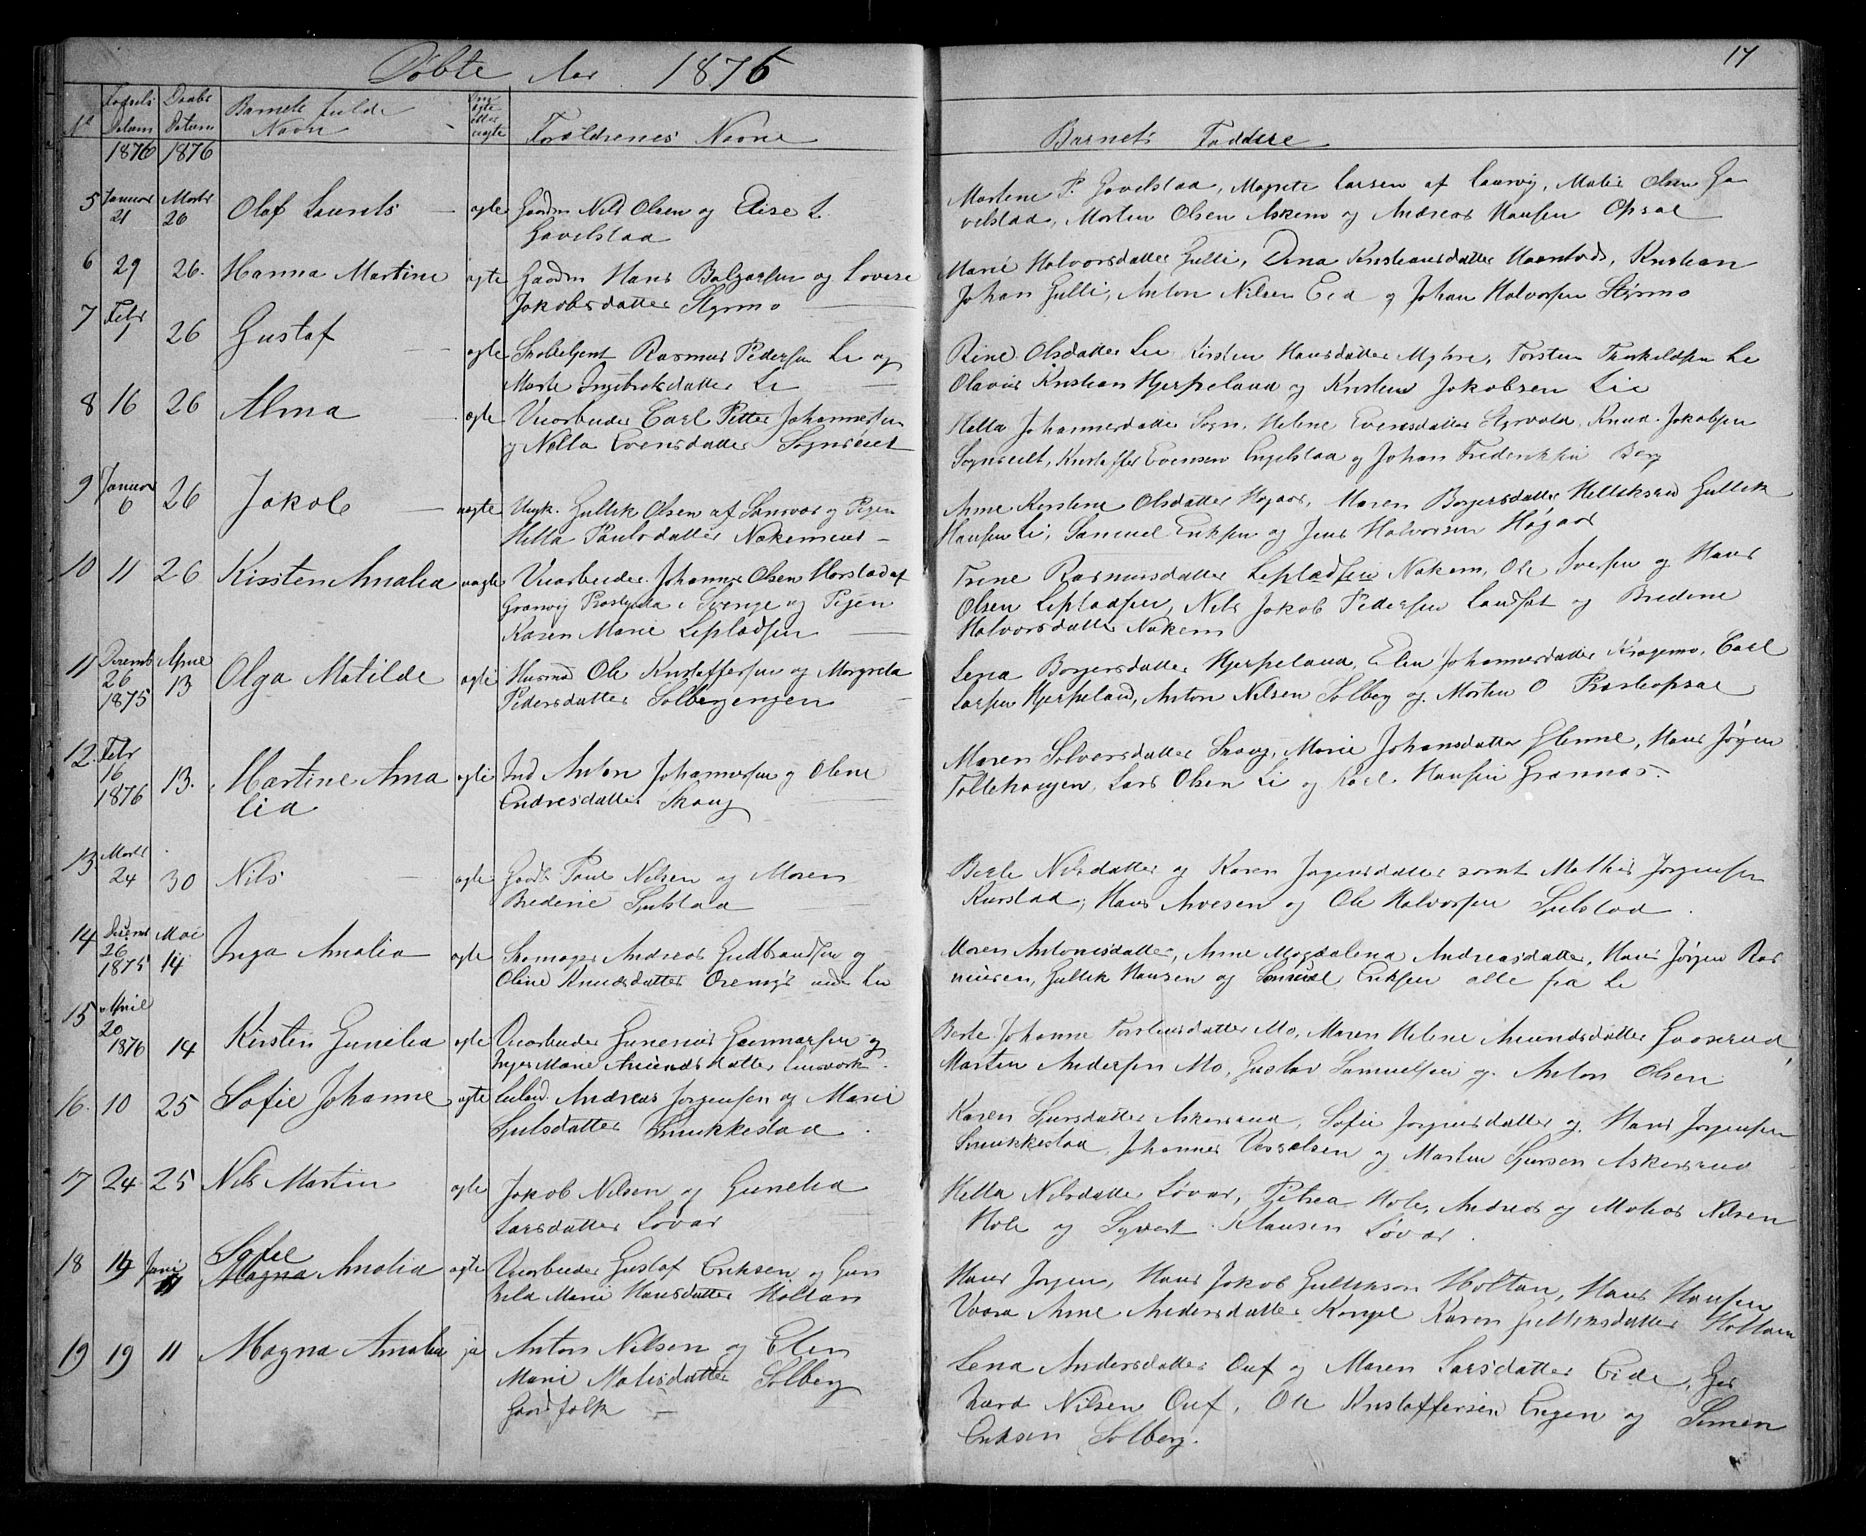 Døbte Aar 1876
17
No
Fødsels Datum
Daabs Datum
Barnets fulde Navn
Om ægte eller uægte
Forældrenes Navne
Barnets Faddere
1876 1876
5 Januar 21 Marts 26 Olaf Laurits ægte Gaardm Nils Olsen og Elise L.
Gavelstad
Martene P. Gavelstad, Magrete Larsen af Laurvig, Matie Olsen Ga
velstad, Morten Olsen Askem og Andreas Hansen Opsal
6 29 26. Hanna Martine ægte Gaardm Hans Balzarsen og Lovise
Jakobsdatter Styrmo
Marie Halvorsdatter Gulli, Dina Kristiansdatter Kristian
Johan Gulli, Anton Nilsen Eid og Johan Halvorsen Styrmo
7 Febr 7 26 Gustaf ægte Rasmus Pedersen Li og
Marte Ingebretsdatter Li
Rine Olsdatter Lie Kirsten Hansdatter Myhre, Torsten Torkildsen Li
Olavus Kristian Hjerpeland og Kristian Jakobsen Lie
8 16 26 Alma ægte Veiarbeider Carl Petter Johannesen
og Netta Evensdatter Sognseiet
Hella Johannesdatter Sogn, Helene Evensdatter Styrvold, Knud Jakobsen
Sognseiet, Kristoffer Evensen Engelstad og Johan Frederiksen Berg
9 Januar 6 26 Jakob uægte Ungk. Gullik Olsen af Sansvær og Pigen
Hella Paulsdatter Nakemeiet
Anne Kirstine Olsdatter Høgaas, Maren Borgersdatter Helliksrud Gullik
Hansen Li, Samuel Eriksen og Jens Halvorsen Høgaas
10 11 26 Kirsten Amalia uægte Veiarbeider Johannes Olsen Horstad af
Granvig Prestgield i Sverige og Pigen
Karen Marie Lepladsen
Trine Rasmusdatter Lepladsen Nakem, Ole Iversen og Hans
Olsen Lepladsen, Nils Jakob Pedersen Landfat og Bredine
Halvorsdatter Nakem
11 Decemb 26 1875 April 13 Olga Matilde ægte Husmd Ole Kristoffersen og Margreta
Pedersdatter Solbergengen
Lena Borgersdatter Hjerpeland, Elen Johannesdatter Kragemo, Carl
Larsen Hjerpeland, Anton Nilsen Solberg og Morten O Præsteopsal
12. Febr 16 1876 13. Martine Ama
lia ægte Ind Anton Johannesen og Oline
Endresdatter Skaug
Maren Solversdatter Skaug, Marie Johansdatter Glenne, Hans Jørgen
Tollehaugen, Lars Olsen Li og Karl Hansen Grannæs.
13 Marts 24 30 Nils ægte Gaardb Paul Nilsen og Maren
Bredine Sjulstad
Berte Nilsdatter og Karen Jørgensdatter samt Mathis Jørgensen
Runstad, Hans Arvesen og Ole Halvorsen Sjulstad.
14 Decemb 26 1875 Mai 14 Inga Amalia ægte Skomager Andreas Gudbrandsen og
Oline Knudsdatter under Lie
Maren Antonisdatter, Anne Magdalena Andreasdatter, Hans Jørgen Ras
musen, Gullik Hansen og Samuel Eriksen alle fra Li
15 April 20 1876 14 Kirsten Gunelia ægte Veiarbeider Gunerius Gunnarsen og
Inger Marie Amundsdatter
Berte Johanne Torstensdatter Mo, Maren Helene Amundsdatter Gaaserud,
Martin Andersen Mo, Gustav Samuelsen og Anton Olsen
16. 10 25 Sofie Johanne ægte Andreas Jørgensen og Marie
Sjulsdatter Smukkestad.
Karen Sjursdatter Askersrud, Sofie Jørgensdatter og Hans Jørgensen
Smukkestad, Johannes Vesselsen og Martin Sjursen Askersrud
17 24 25 Nils Martin ægte Jakob Nilsen og Gunelia
Larsdatter Løvar
Hella Nilsdatter Løvar, Petrea Hole, Andreas og Matias Nilsen
Hole og Syvert Klausen Løvar.
18 14 Juni 11 Sofie
Magna Amalia ægte Veiarbeider Gustaf Eriksen og Gun
hild Marie Hansdatter Holtan
Hans Jørgen, Hans Jakob Gulliksen Holtan, Hans Hansen
Vaara Anne Andersdatter Kongel Karen Gulliksdatter Holtan
19 19 11 Magna Amalia ja Anton Nilsen og Elen
Marie Matisdatter Solberg
Gaardfolk
Lena Andersdatter Ouf og Maren Larsdatter Eide, Ger
hard Nilsen Ouf, Ole Kristoffersen Engen og Simen
Eriksen Solberg.